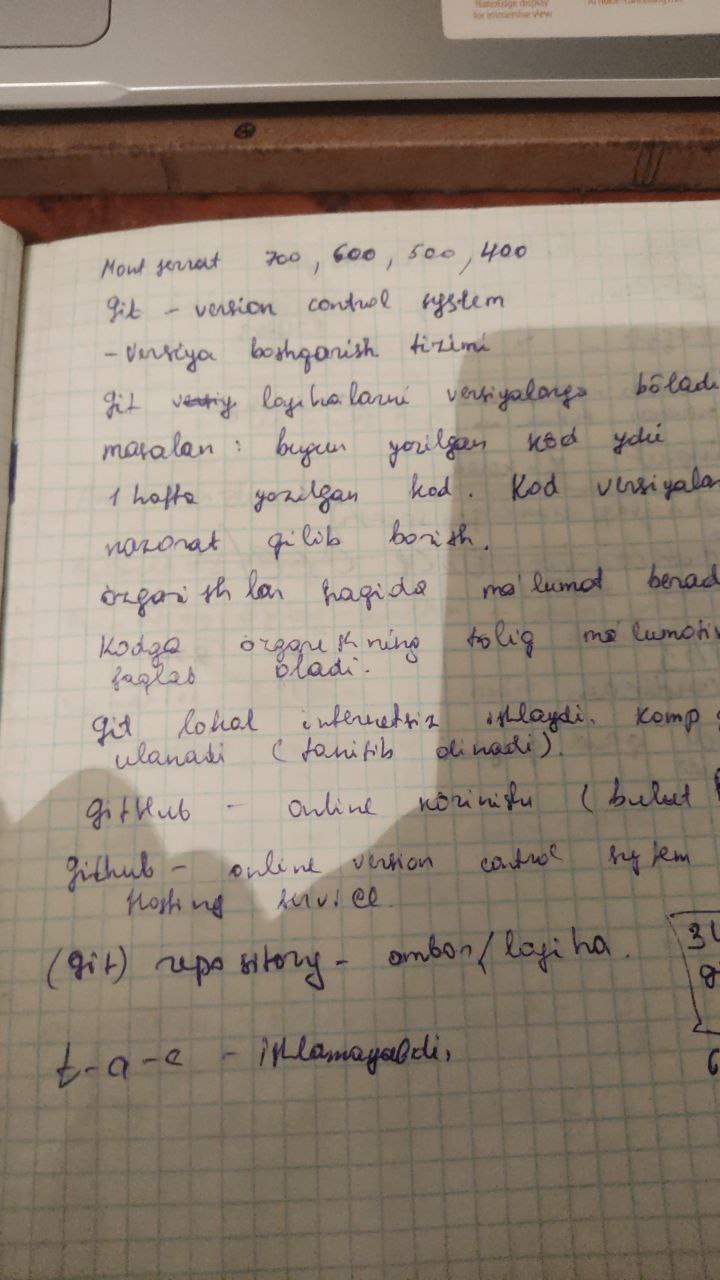 NanoEdge display
for immersive view
Montserrat 700, 600, 500, 400
Git - version control system
- versiya boshqarish tizimi
git loyihalarni versiyalarga bõladi
masalan: bugun yozilgan kod yoki
1 hafta yozilgan kod. Kod versiyalar
nazorat qilib borish.
õzgarishlar haqida ma'lumot berad
kodga õzgarishning tõliq ma'lumotin
saqlab oladi.
Git lokal internetsiz ishlaydi. Komp
ulanadi (tanitib olinadi).
GitHub - online kõrinishi (bulut
Github - online version control system
Hosting service.
(Git) repository - ombor/loyiha.
t-a-c - ishlamayabdi,